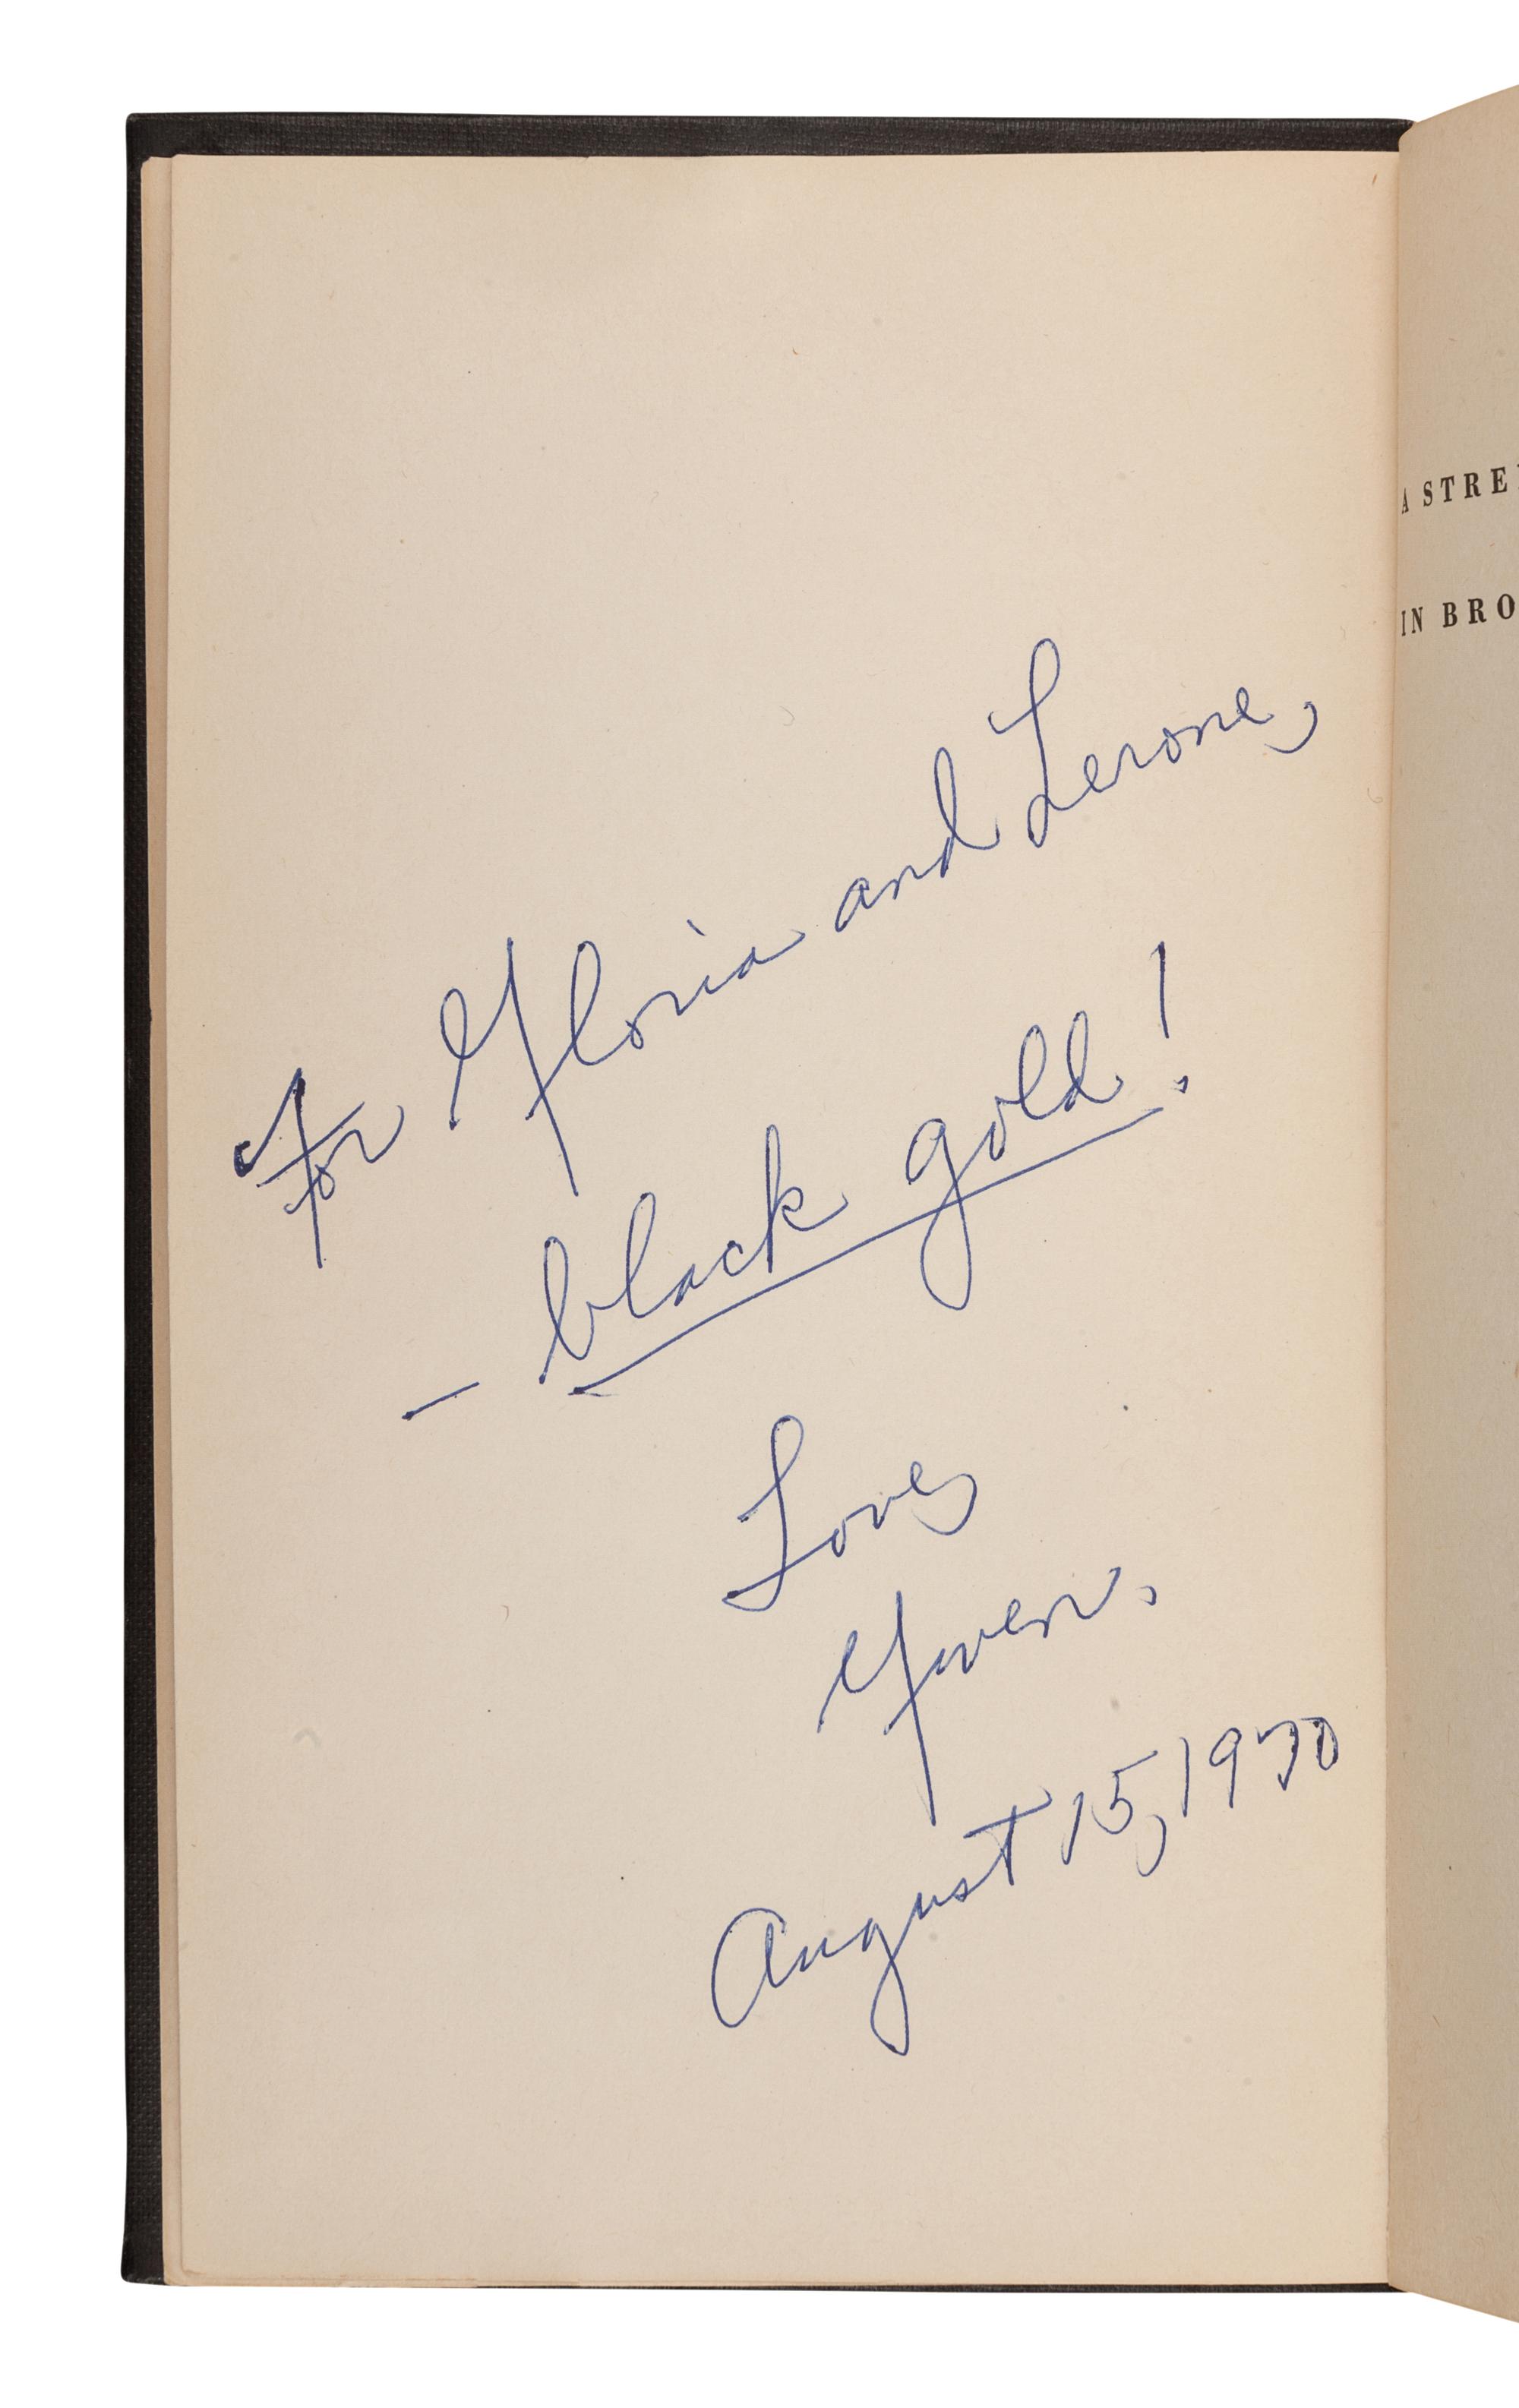 For Gloria and Lerone,
— black gold!
Love,
Gwen.
August 15, 1970
A STRE
IN BRO